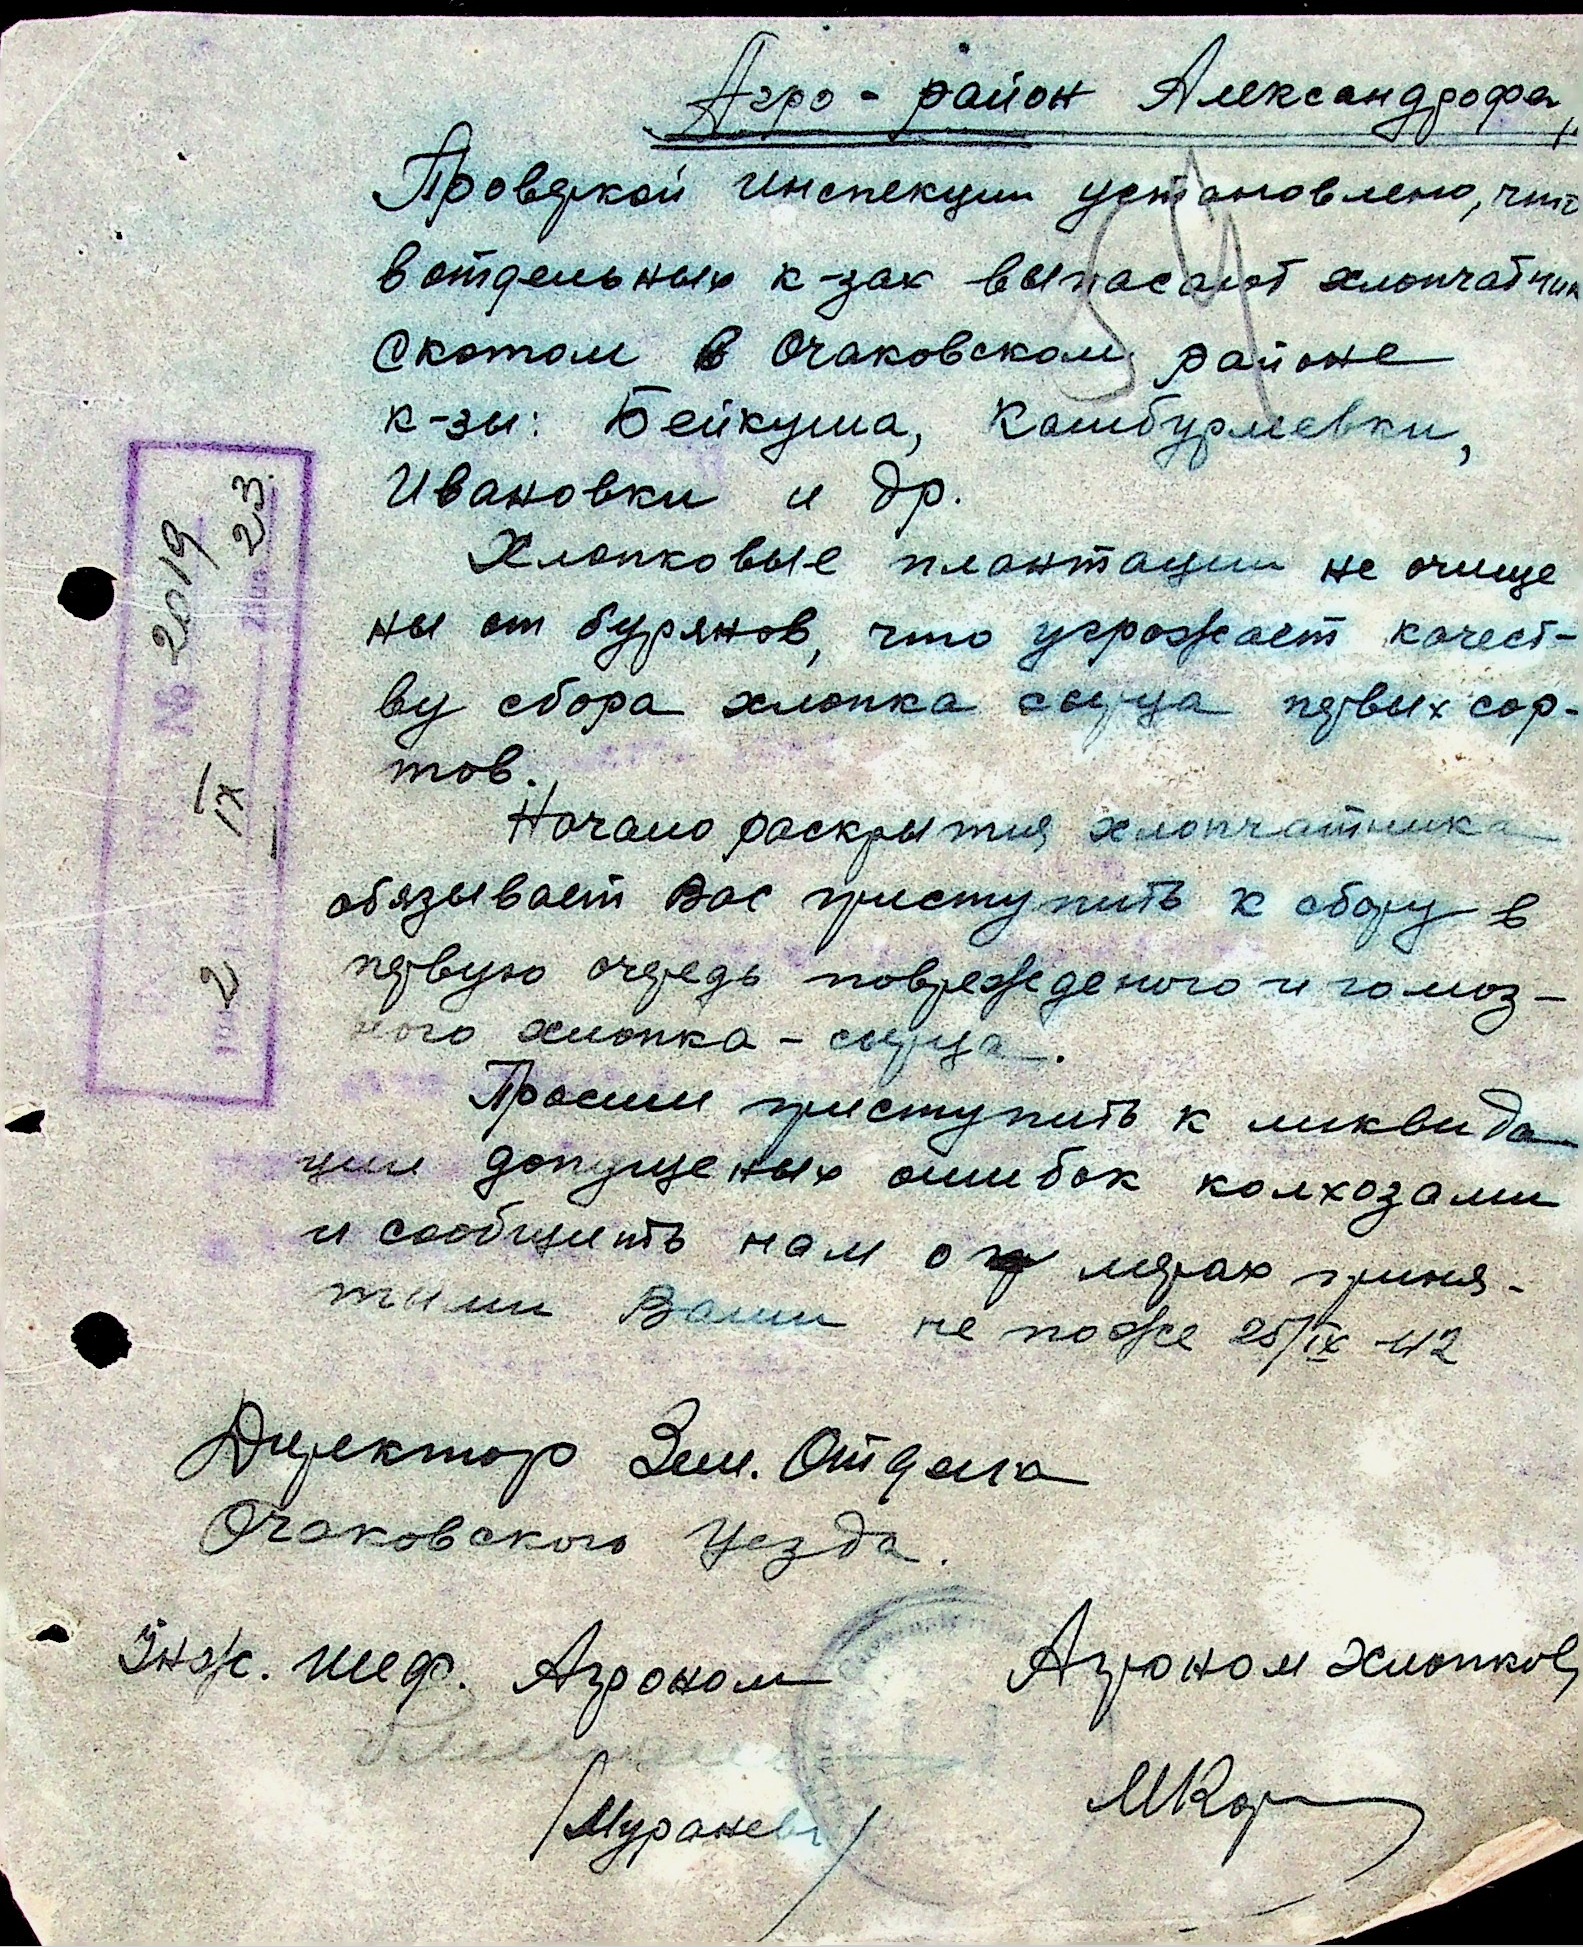 Агро-район Александрофа,
Проверкой инспекции установлено, что
в отдельных к-зах выпасают хлопчатник
скотом в Очаковском районе
к-зы: Бейкуша, Камбурлиевки,
Ивановки и др.
Хлопковые плантации не очище
ны от бурянов, что угрожает качест-
ву сбора хлопка сырца первых сор-
тов.
Начало раскрытия хлопчатника
обязывает Вас приступить к сбору в
первую очередь поврежденого и гомоз-
ного хлопка-сырца.
Просим приступить к ликвида
ции допущеных ошибок колхозами
и сообщить нам о мерах приня-
тыми Вами не позже 25/IX 42
Директор Зем. Отдела
Очаковского Уезда.
Інж. шеф. Агроном
Агроном хлопков,
/Мураневи/
МКор
54
№ 2019
2 IX 23